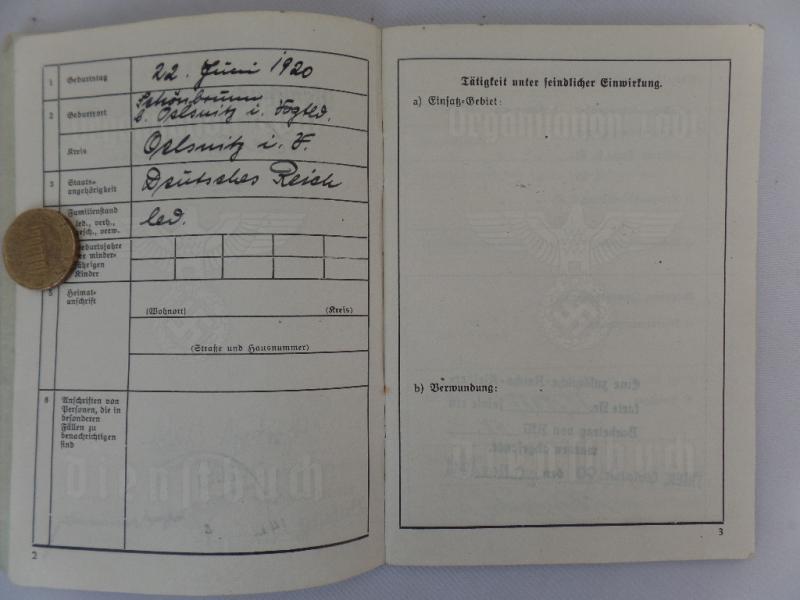 1 Geburtstag 22. Juni 1920
2 Geburtsort Schönbrunn
b. Oelsnitz i. Vogtld.
Kreis Oelsnitz i. V.
3 Staats-
angehörigkeit Deutsches Reich
Familienstand
led., verh.,
gesch., verw. led.
Geburtsjahre
der minder-
jährigen
Kinder
5 Heimat-
anschrift
(Wohnort) (Kreis)
(Straße und Hausnummer)
6 Anschriften von
Personen, die in
besonderen
Fällen zu
benachrichtigen
sind
Dienstbuch
2
Tätigkeit unter feindlicher Einwirkung.
a) Einsatz-Gebiet:
b) Verwundung:
3